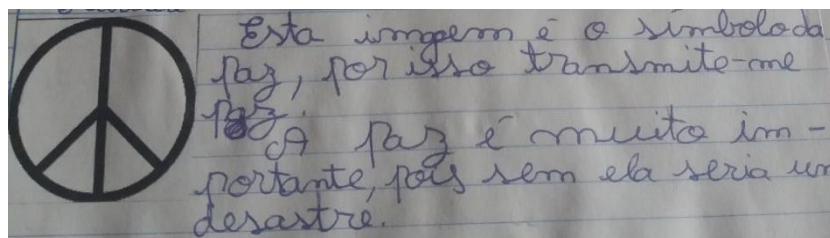 Esta imgem é o símbolo da
paz, por isso transmite-me
paz.
A paz é muito im-
portante, pois sem ela seria um
desastre.